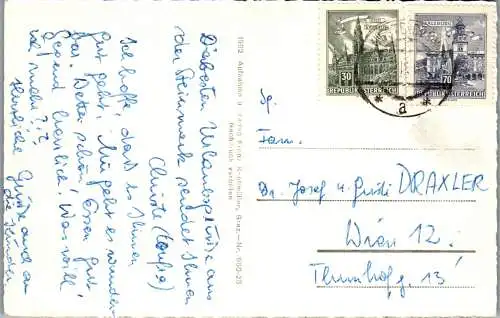 Die besten Urlaubsgrüße aus
der Steiermark sendet Ihnen
Christe
Ich hoffe, dass es Ihnen
gut geht! Mir geht es wunder-
bar! Wetter schön! Essen gut!
Gegend herrlich! Was will
ich mehr?!?
Herzliche Grüße auch an
die Kinder
1962 Aufnahme u. Verlag Franz
Graz
Nachdruck verboten
WIEN
30
REPUBLIK ÖSTERREICH
SALZBURG
70
REPUBLIK ÖSTERREICH
a
Fam.
Dr. Josef u. Guidi DRAXLER
Wien 12.
Thunhofg. 13